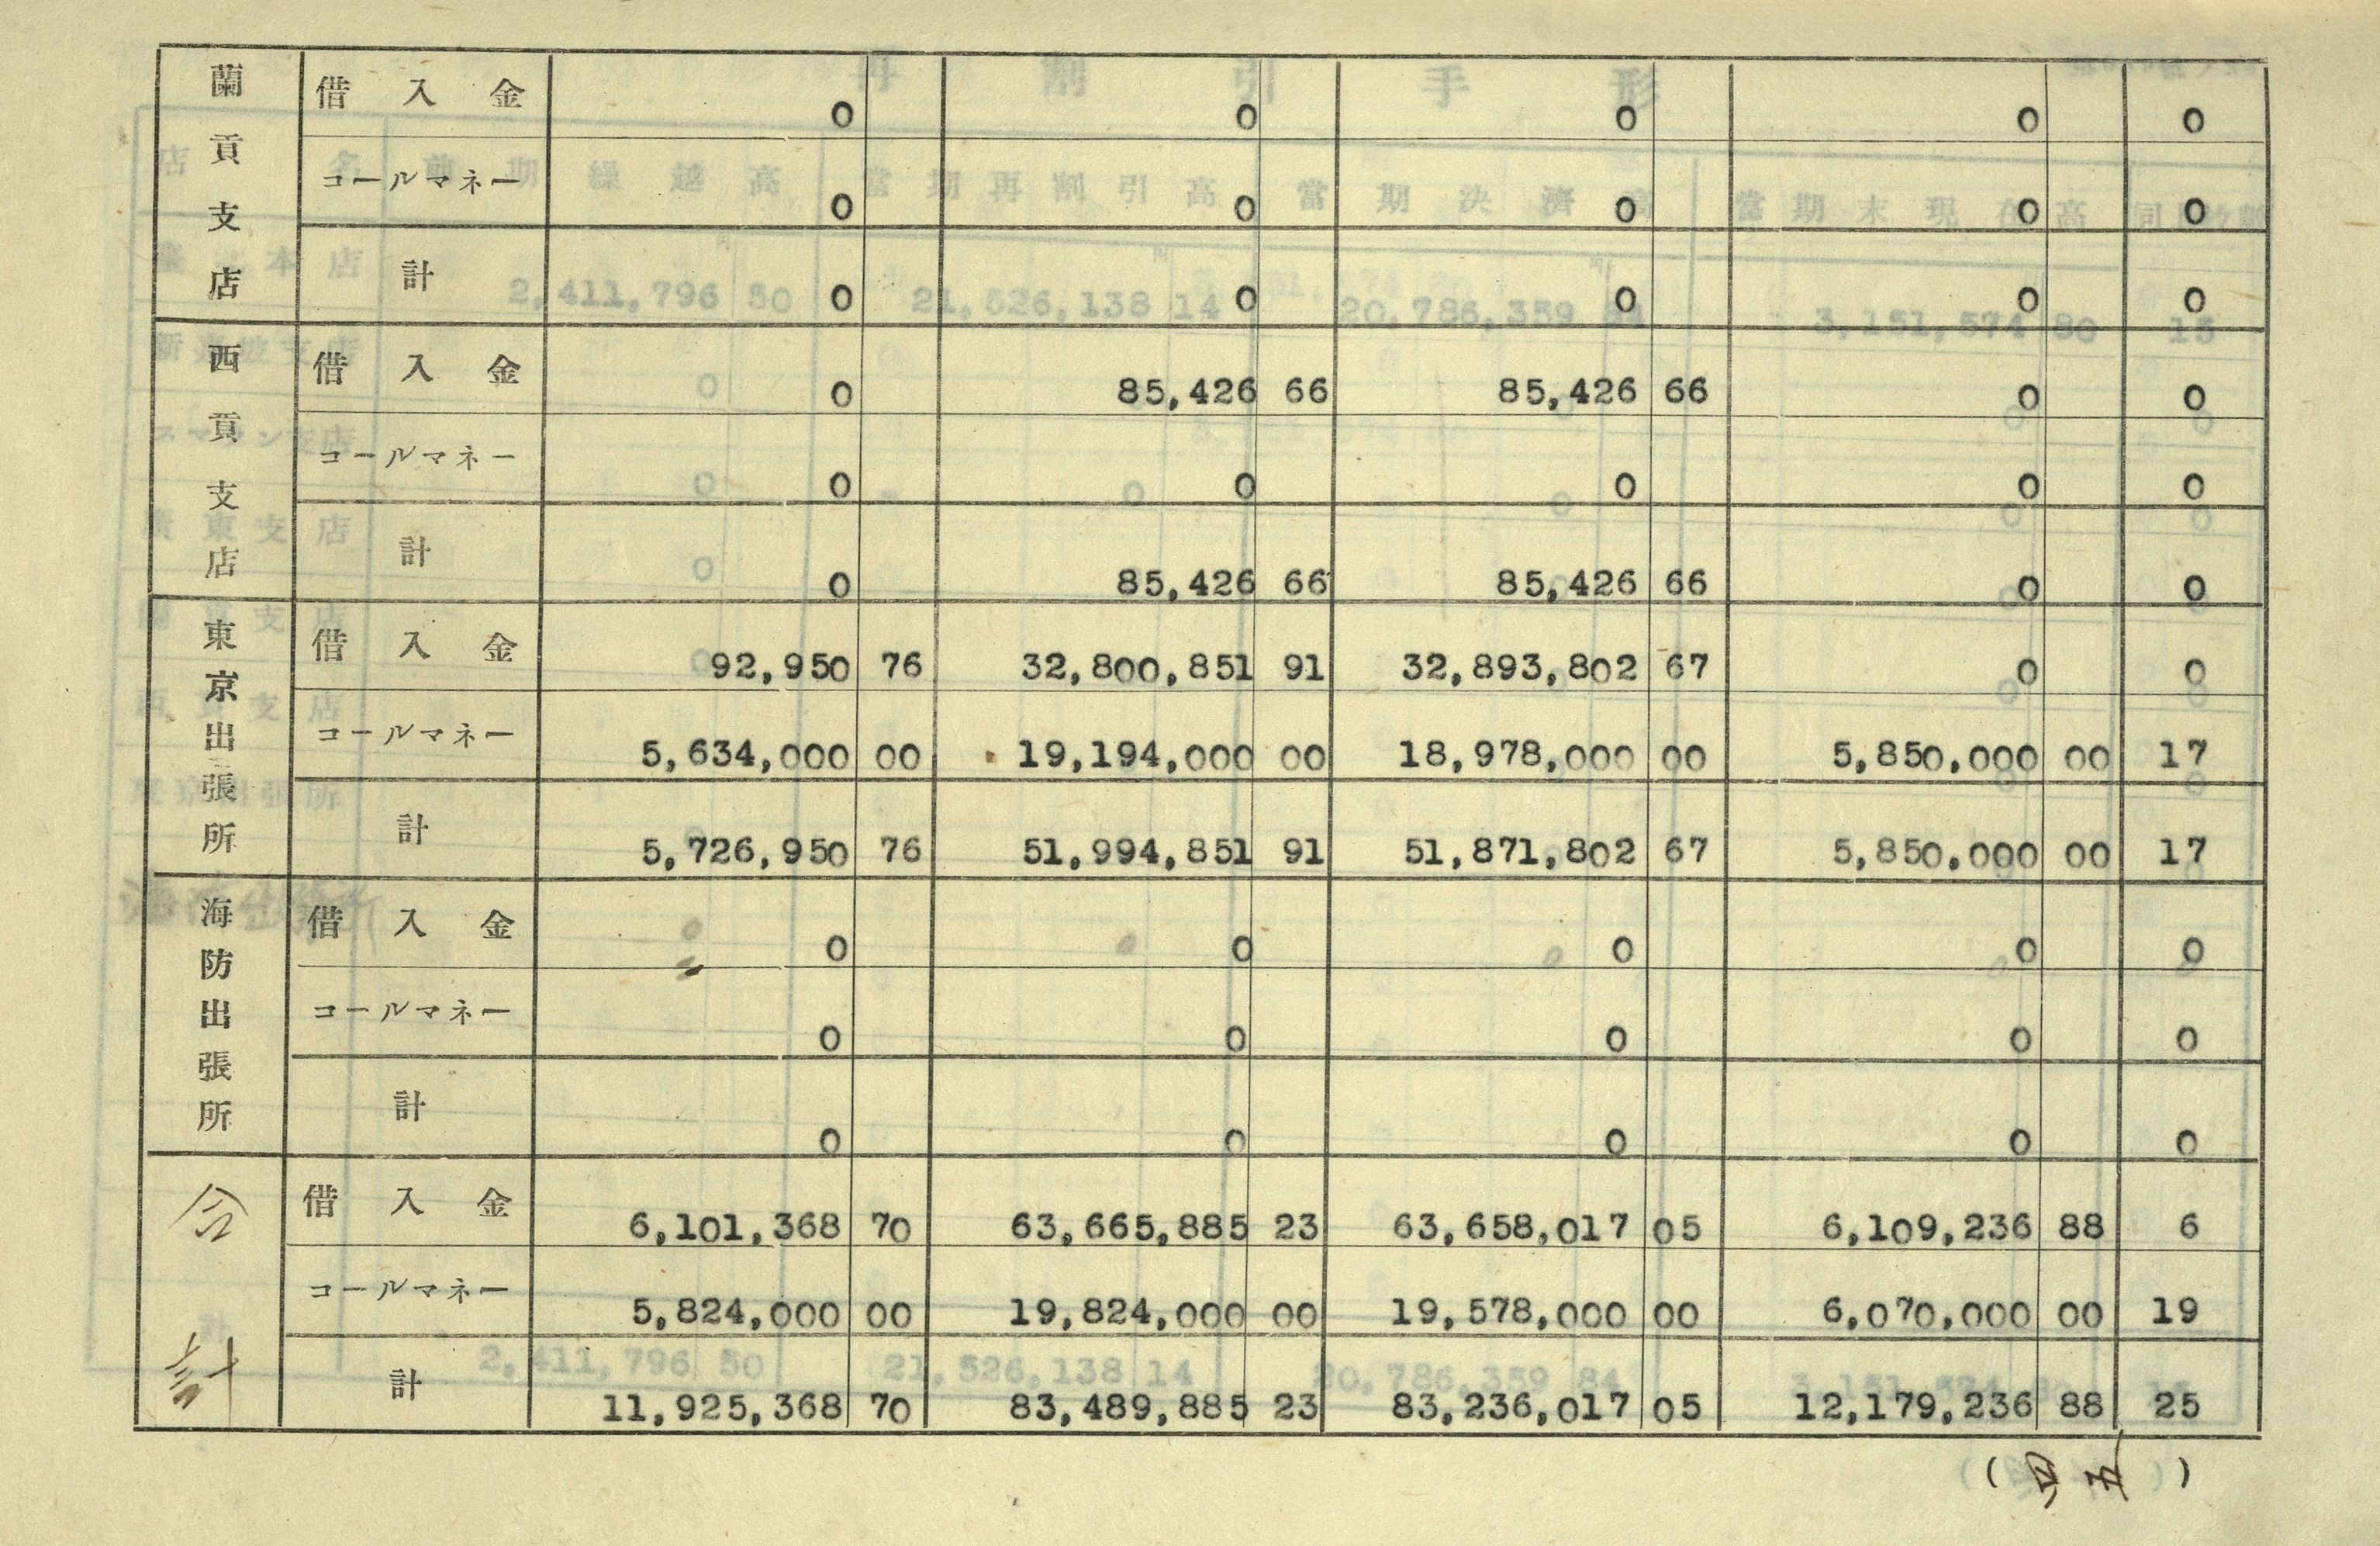 蘭貢支店
借入金 0 0 0 0 0
コールマネー 0 0 0 0 0
計 0 0 0 0 0
西貢支店
借入金 0 85,426 66 85,426 66 0 0
コールマネー 0 0 0 0 0
計 0 85,426 66 85,426 66 0 0
東京出張所
借入金 92,950 76 32,800,851 91 32,893,802 67 0 0
コールマネー 5,634,000 00 19,194,000 00 18,978,000 00 5,850,000 00 17
計 5,726,950 76 51,994,851 91 51,871,802 67 5,850,000 00 17
海防出張所
借入金 0 0 0 0 0
コールマネー 0 0 0 0 0
計 0 0 0 0 0
合計
借入金 6,101,368 70 63,665,885 23 63,658,017 05 6,109,236 88 6
コールマネー 5,824,000 00 19,824,000 00 19,578,000 00 6,070,000 00 19
計 11,925,368 70 83,489,885 23 83,236,017 05 12,179,236 88 25
(四五)